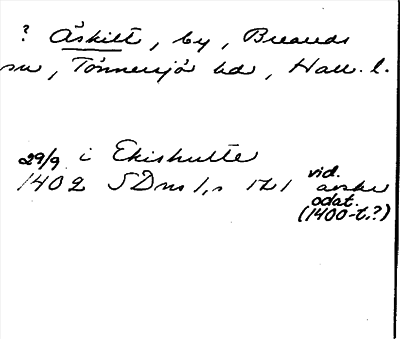 ? Åskilt, by, Breareds
sn, Tönnersjö hd, Hall. l.
29/9 i Ekishulte
1402 SDns 1, s 121 vid.
avskr
odat.
(1400-t.?)